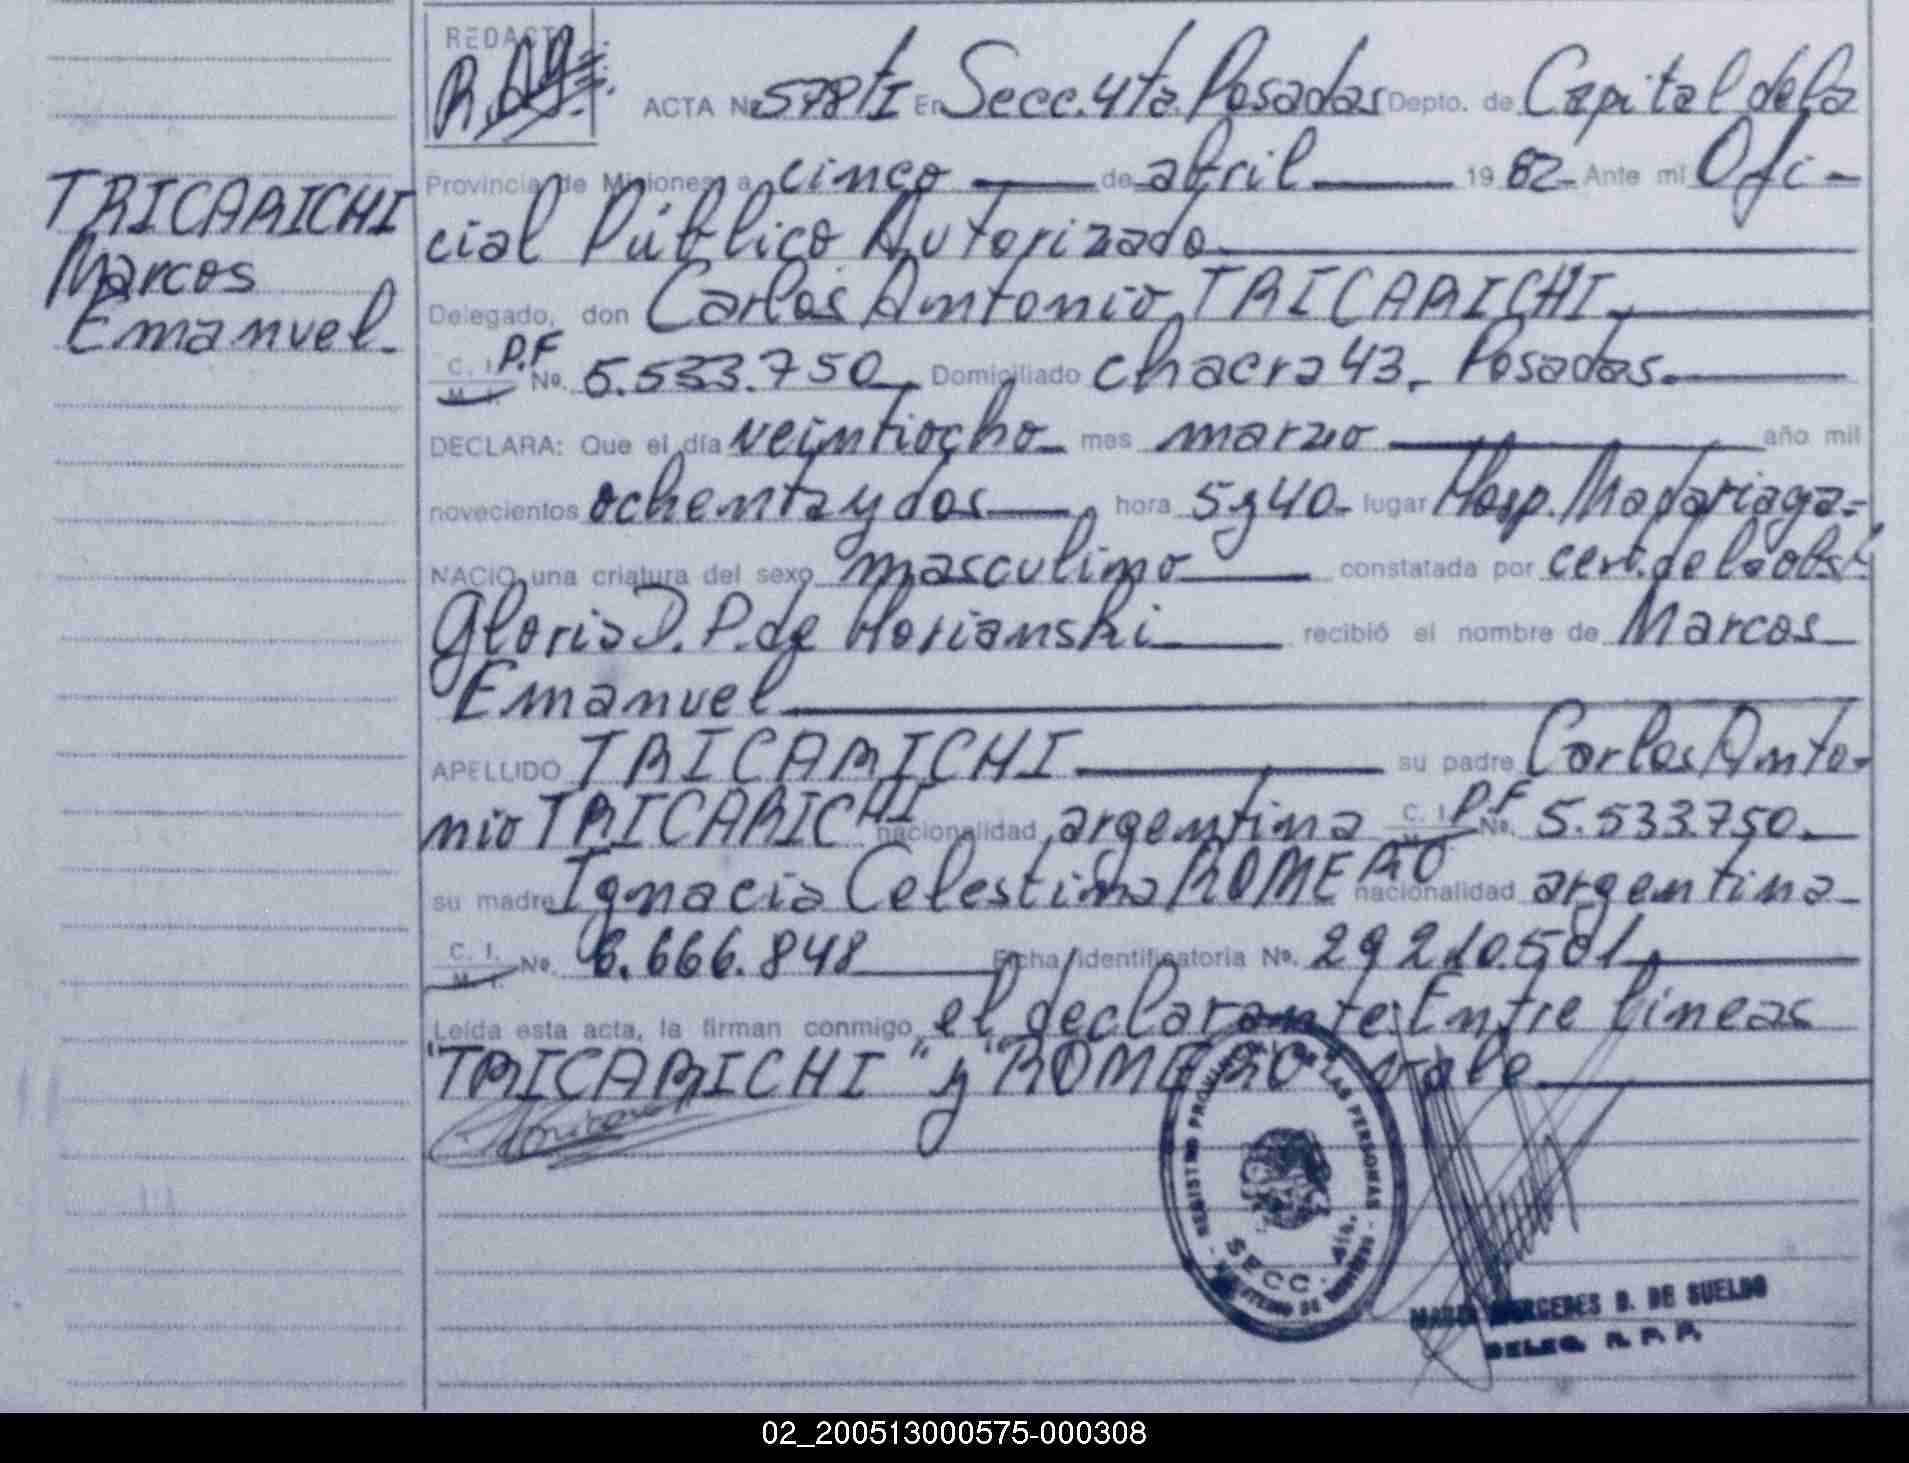 REDACTÓ
ACTA No. 578/I En Secc. 4ta. Posadas Depto. de Capital de la
Provincia de Misiones, a cinco de abril 1982 Ante mi Ofi-
cial Público Autorizado
TRICARICHI
Marcos
Emanuel
Delegado, don Carlos Antonio TRICARICHI
C. I. M. I. P.F No. 5.533.750, Domiciliado chacra 43, Posadas.
DECLARA: Que el día veintiocho mes marzo año mil
novecientos ochenta y dos, hora 5 y 40 lugar Hosp. Madariaga=
NACIO una criatura del sexo masculino constatada por cert. de la obst.
Gloria D. P. de Horianski recibió el nombre de Marcos
Emanuel
APELLIDO TRICARICHI su padre Carlos Anto-
nio TRICARICHI nacionalidad argentina C. I. M. I. P.F No. 5.533.750.
su madre Ignacia Celestina ROMERO nacionalidad argentina
C. I. M. I. No. 6.666.848 Ficha identificatoria No. 29.210.501
Leída esta acta, la firman conmigo, el declarante. Entre líneas
"TRICARICHI" y "ROMERO" vale
REGISTRO PROVINCIAL DE LAS PERSONAS
SECC. 4ta.
MARIA MERCEDES D. DE SUELDO
DELEG. R. P. P.
02_200513000575-000308